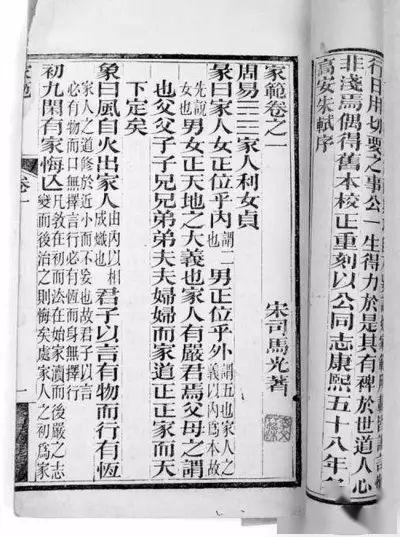 行日用切要之事公一生得力於是其有裨於世道人心
非淺焉偶得舊本校正重刻以公同志康熙五十八年
高安朱軾序
家範卷之一
宋司馬光著
周易䷤家人利女貞
彖曰家人女正位乎內謂二男正位乎外謂五也家人之義以內為本故
先說女也男女正天地之大義也家人有嚴君焉父母之謂
也父父子子兄兄弟弟夫夫婦婦而家道正正家而天
下定矣
象曰風自火出家人由內以相成熾也君子以言有物而行有恆
家人之道修於近小而不妄也故君子以言必有物而口無擇言行必有恆而身無擇行
初九閑有家悔亡凡教在初而法在始家瀆而後嚴之志變而後治之則悔矣處家人之初為家